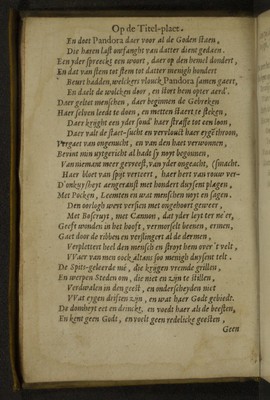 Op de Titel-plaet.
En doet Pandora daer voor al de Goden staen,
Die haren last ontfanght van datter diene gedaen.
Een yder spreeckt een woort, daer op den hemel dondert,
En dat van stem tot stem tot datter menigh hondert
Beurt hadden, welckers vloeck Pandora samen gaert,
En daelt de wolcken door, en stort hem opter aerd'.
Daer geltet menschen, daer beginnen de Gebreken
Haer selven leedt te doen, en metten staert te steken,
Daer krijght een yder sond' haer straffe tot een loon,
Daer valt de staet-sucht en vervloeckt haer eygē throon,
Vergaet van ongenucht, en van den haet verwonnen,
Berout mijn uytgericht al hadt sy noyt begonnen,
Van niemant meer gevreest, van yder ongeacht,
Haer bloet van spijt verteert, haer hert van rouw versmacht.
D'onkuysheyt aengeranst met hondert duysent plagen,
Met Pocken, Leemten en wat menschen noyt en sagen.
Den oorlogh wert versien met ongehoort geweer,
Met Boscruyt, met Cannon, dat yder leyt ter ne'er,
Geeft wonden in het hooft, vermorselt beenen, ermen,
Gaet door de ribben en verslingert al de dermen,
Verplettert heel den mensch en stroyt hem over 't velt,
VVaer van men oock altans soo menigh duysent telt.
De Spits-geleerde mē, die krijgen vreemde grillen,
En werpen Steden om, die niet en zijn te stillen,
Verdwalen in den geest, en onderscheyden niet
VVat eygen driften zijn, en wat haer Godt gebiedt.
De domheyt eet en drinckt, en voedt haer als de beesten,
En kent geen Godt, en voelt geen redelicke geesten,
Geen